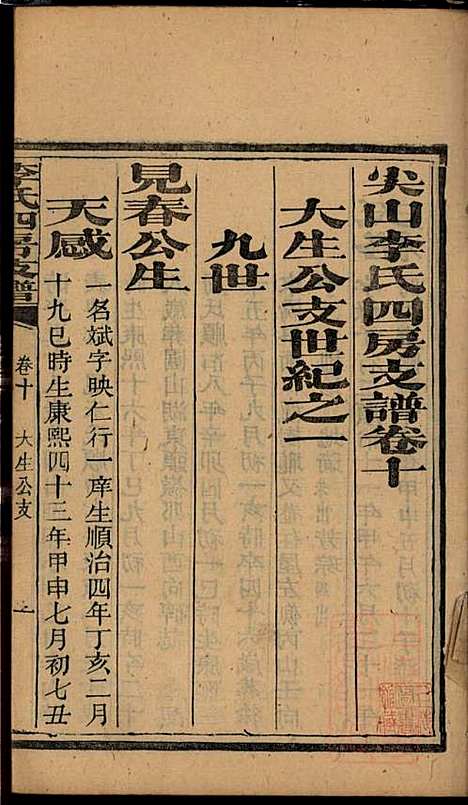 尖山李氏四房支譜卷十
大生公支世紀之一
九世
見春公生
天感
一名斌字映仁行一庠生順治四年丁亥二月
十九巳時生康熙四十三年甲申七月初七丑
李氏四房支譜
卷十
大生公支
一